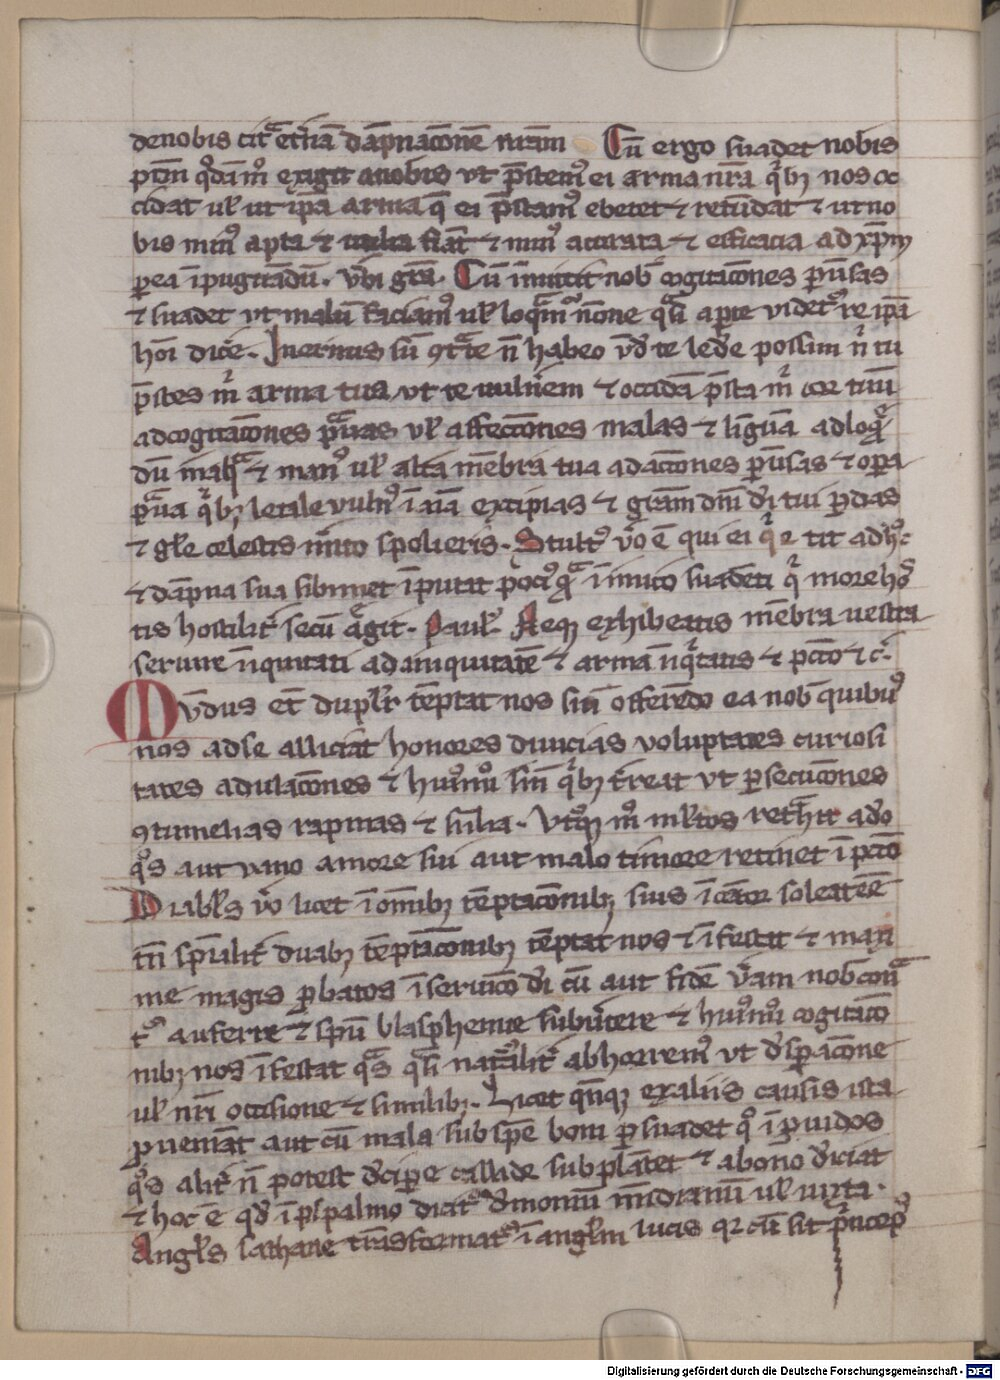 de nobis citᷓ et̄nā dāpnac̄onē nr̄am Cū ergo suadet nobis
pccm̄ qͦdāmͦ exigit a nobis vt p̄stemꝰ ei arma nr̄a qͥbꝫ nos oc
cidat ul̄ ut ip̄a arma q̄ ei p̄stamꝰ ebetet ⁊ retūdat ⁊ ut no
bis minꝰ apta ⁊ fiāt ⁊ minꝰ accurata ⁊ efficacia ad xp̄m
ꝑea īpugnādū. Vbi gr̄a. Cū īmittit nob̄ cogitac̄ones ꝑūsas
⁊ suadet vt malū faciamꝰ ul̄ loq̄amͬ n̄ one qͣsi aꝑte videtͬ re ip̄a
hoī dice. Inermis sū ꝯͣ te n̄ habeo vn̄ te led̓e possim nͥ tu
p̄stes mͥ arma tua vt te uuln̄em ⁊ occidā p̄sta mͥ cor tuū
ad cogitac̄ones pͣuas vl̄ affecc̄ones malas ⁊ līguā ad loqͤ
dū mala ⁊ manꝰ ul̄ alia mēbra tua ad acc̄ones ꝑūsas ⁊ oꝑa
pͣua qͥbꝫ letale vulnꝰ ī aīa excipias ⁊ gr̄am dn̄i dī tui ꝑdas
⁊ gl̄e celestis īmito spolieris. Stultꝰ v̓o ē qui ei qͥ e tit ad hͦ
⁊ dāpna sua sibimet īputat pociꝰ qͣ īimico suadēti qͥ more hos
tis hostilit̓ secū agit. Paul̄. Neqꝫ exhibeatis mēbra uestra
seruire īiquitati ad iniquitatē ⁊ arma īiqͥtatis ⁊ pctō ⁊ c̄
Mūdus et̄ duplr̄ tēptat nos siū offerēdo ea nob̄ quibꝰ
nos ad se alliciat honores diuicias voluptates curiosi
tates adulac̄ones ⁊ huꝰmōi siū qͥbꝫ t̓reat vt ꝑsecuc̄ones
ꝯtumelias rapinas ⁊ silīa. Vtͦqꝫ mͦ ml̄tos retͣhit a deo
qͦs aut vano amore sui aut malo timore retinet ī pctō
Diabl̄s v̓o licet ī om̄ibꝫ tēptac̄onibꝫ suis īcētor soleat eē
tn̄ spālit̓ duabꝫ tēptac̄onibꝫ tēptat nos ⁊ īfestat ⁊ maxi
me magis ꝑbatos ī seruico dī cū aut fidē v̓am nob̄ conͣ
tͬ auferre ⁊ spm̄ blasphemie subiīcere ⁊ huꝰmōi cogitac̄o
nibꝫ nos īfestat qͣs qͣsi natͣlit̓ abhorremꝰ vt dsꝑac̄one
ul̄ nr̄i occisione ⁊ similibꝫ. Licet qn̄qꝫ ex aliis causis ista
ꝓueniāt aut cū mala sub spē boni ꝑsuadet qͦ īꝓuidos
qͦs alit̓ n̄ potest dciꝑe callide subplātet ⁊ a bono deiciat
⁊ hoc ē qd̓ ī psalmo dicitͬ demoniū meridianū ul̄ iuxta.
Angl̄s sathane trāsformatͬ ī angl̄m lucis qr cū sit pͥncepˢ
Digitalisierung gefördert durch die Deutsche Forschungsgemeinschaft - DFG